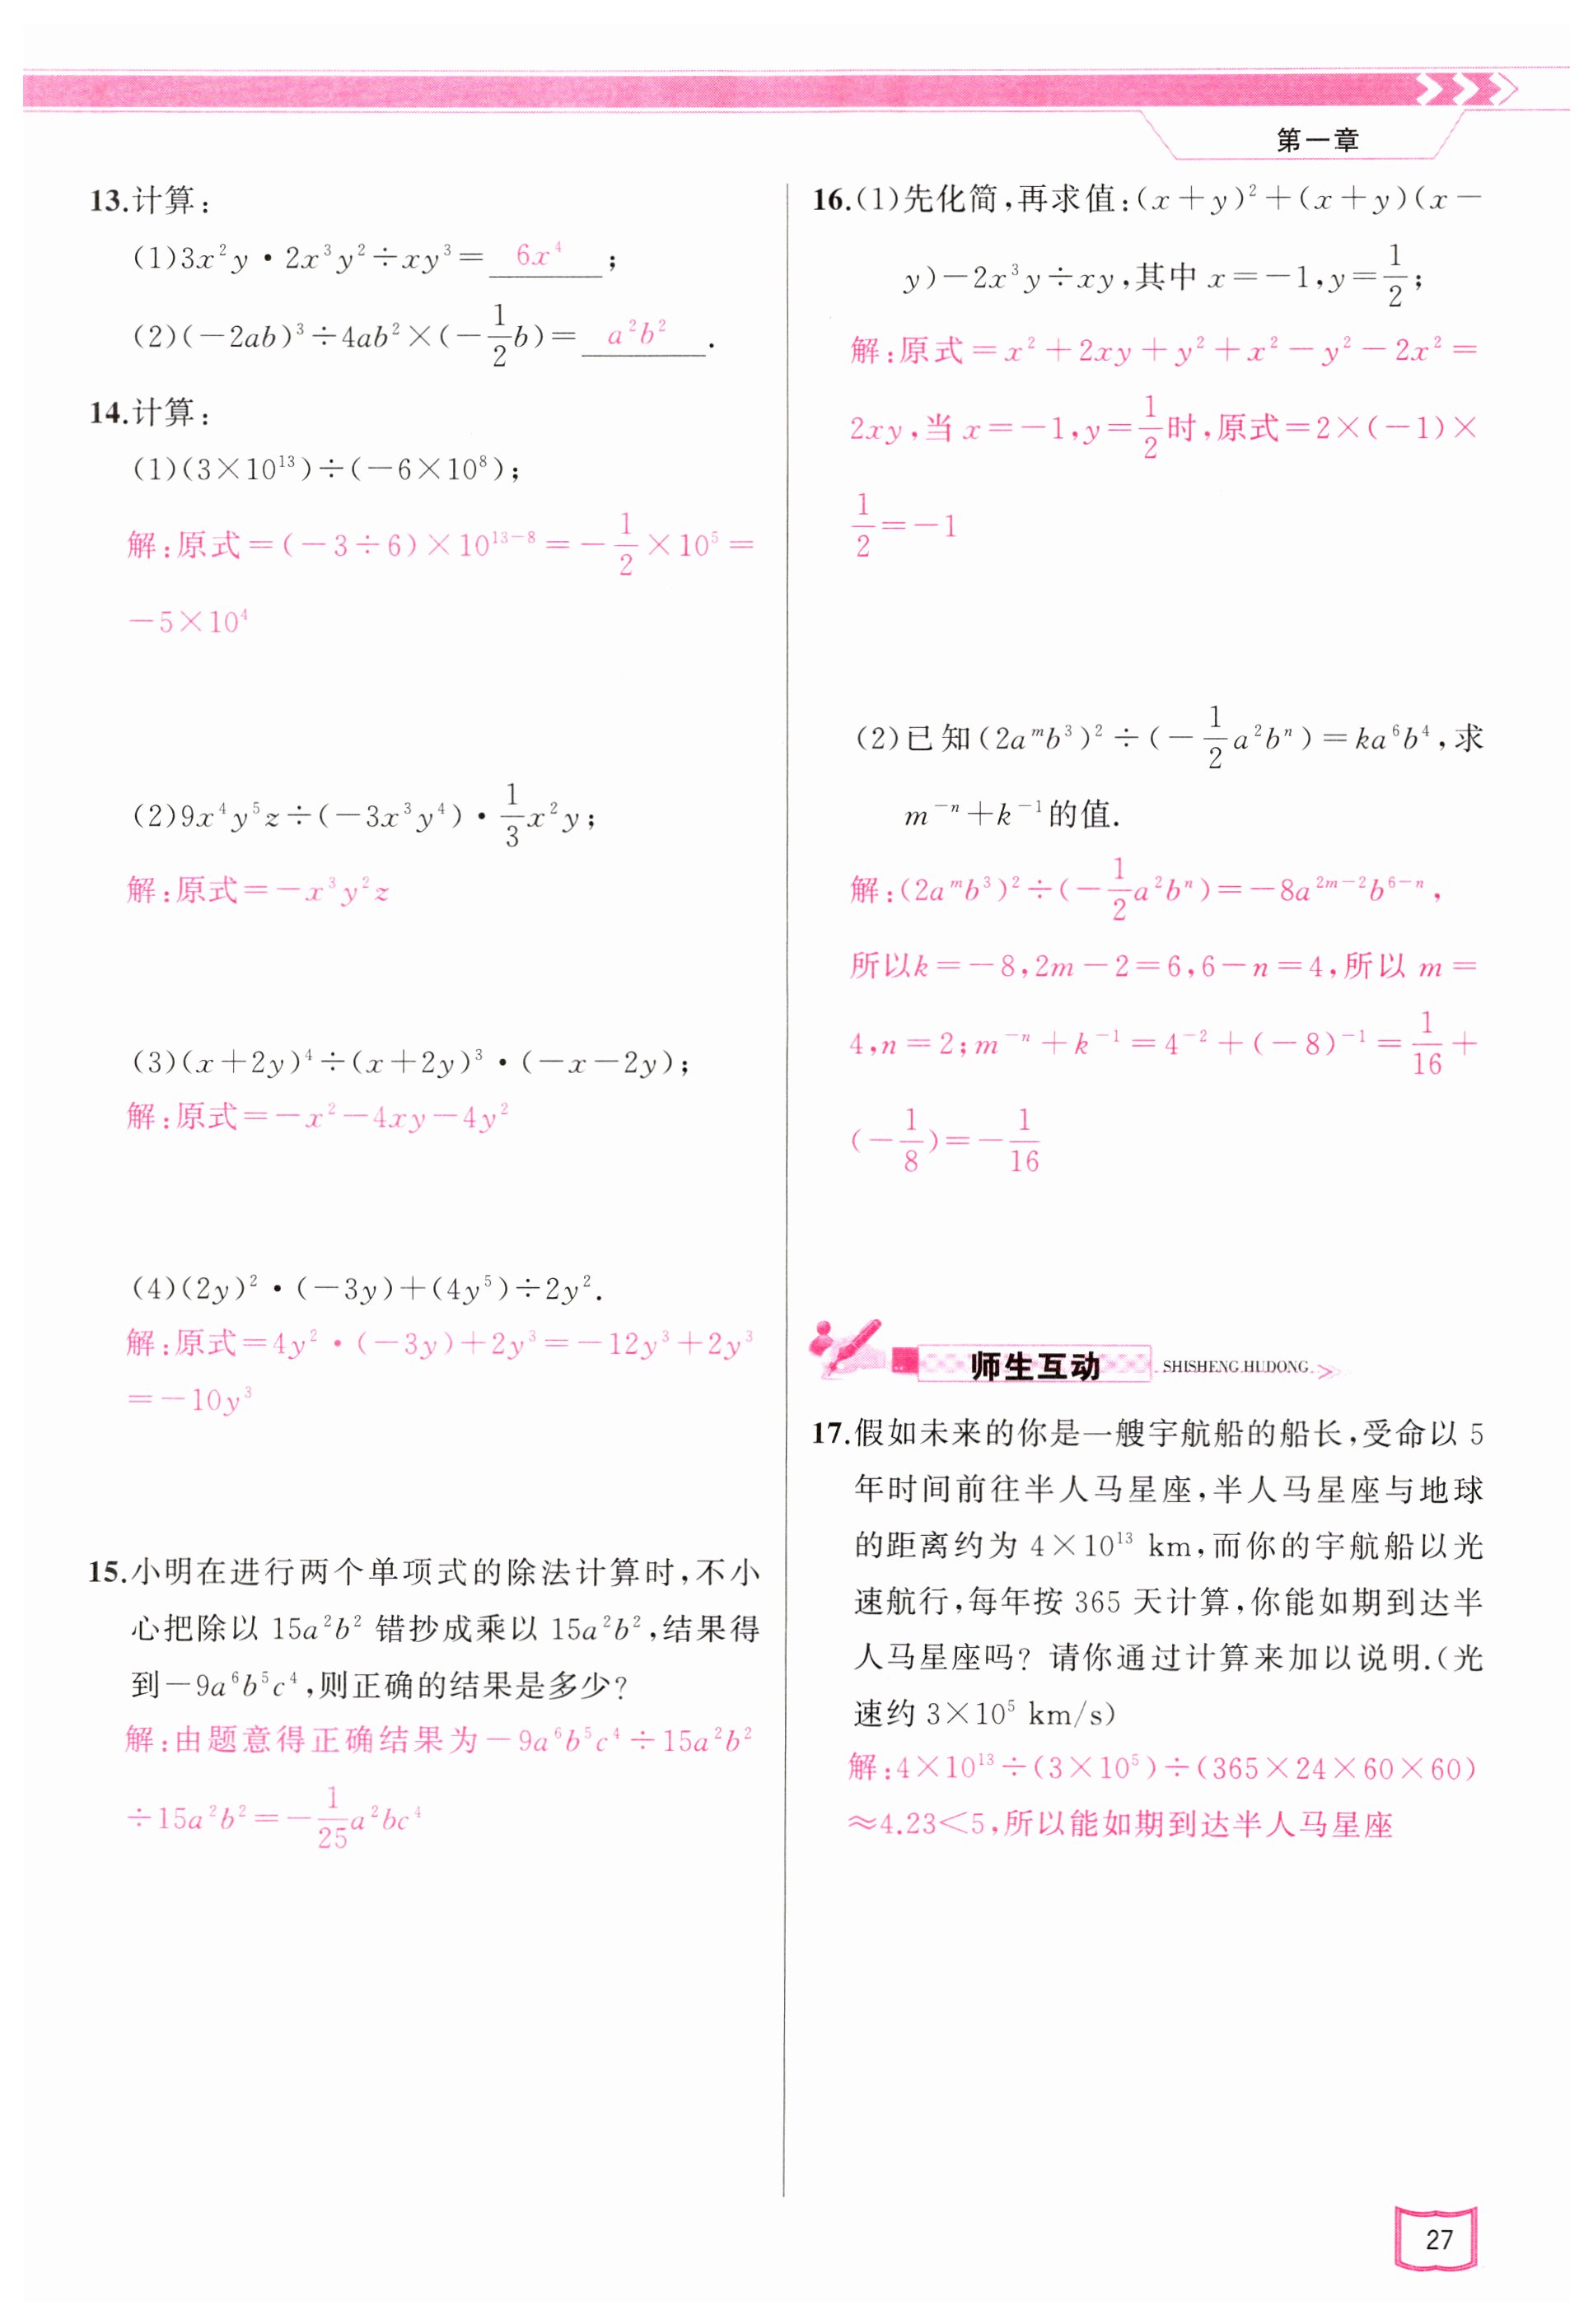 第一章
13.计算:
(1)3x²y·2x³y²÷xy³=6x⁴;
(2)(-2ab)³÷4ab²×(-1/2b)=a²b².
14.计算:
(1)(3×10¹³)÷(-6×10⁸);
解:原式=(-3÷6)×10¹³⁻⁸=-1/2×10⁵=
-5×10⁴
(2)9x⁴y⁵z÷(-3x³y⁴)·1/3x²y;
解:原式=-x³y²z
(3)(x+2y)⁴÷(x+2y)³·(-x-2y);
解:原式=-x²-4xy-4y²
(4)(2y)²·(-3y)+(4y⁵)÷2y².
解:原式=4y²·(-3y)+2y³=-12y³+2y³
=-10y³
15.小明在进行两个单项式的除法计算时,不小
心把除以15a²b²错抄成乘以15a²b²,结果得
到-9a⁶b⁵c⁴,则正确的结果是多少?
解:由题意得正确结果为-9a⁶b⁵c⁴÷15a²b²
÷15a²b²=-1/25a²bc⁴
16.(1)先化简,再求值:(x+y)²+(x+y)(x-
y)-2x³y÷xy,其中x=-1,y=1/2;
解:原式=x²+2xy+y²+x²-y²-2x²=
2xy,当x=-1,y=1/2时,原式=2×(-1)×
1/2=-1
(2)已知(2aᵐb³)²÷(-1/2a²bⁿ)=ka⁶b⁴,求
m⁻ⁿ+k⁻¹的值.
解:(2aᵐb³)²÷(-1/2a²bⁿ)=-8a²ᵐ⁻²b⁶⁻ⁿ,
所以k=-8,2m-2=6,6-n=4,所以m=
4,n=2;m⁻ⁿ+k⁻¹=4⁻²+(-8)⁻¹=1/16+
(-1/8)=-1/16
师生互动 SHISHENG HUDONG
17.假如未来的你是一艘宇航船的船长,受命以5
年时间前往半人马星座,半人马星座与地球
的距离约为4×10¹³ km,而你的宇航船以光
速航行,每年按365天计算,你能如期到达半
人马星座吗?请你通过计算来加以说明.(光
速约3×10⁵ km/s)
解:4×10¹³÷(3×10⁵)÷(365×24×60×60)
≈4.23<5,所以能如期到达半人马星座
27